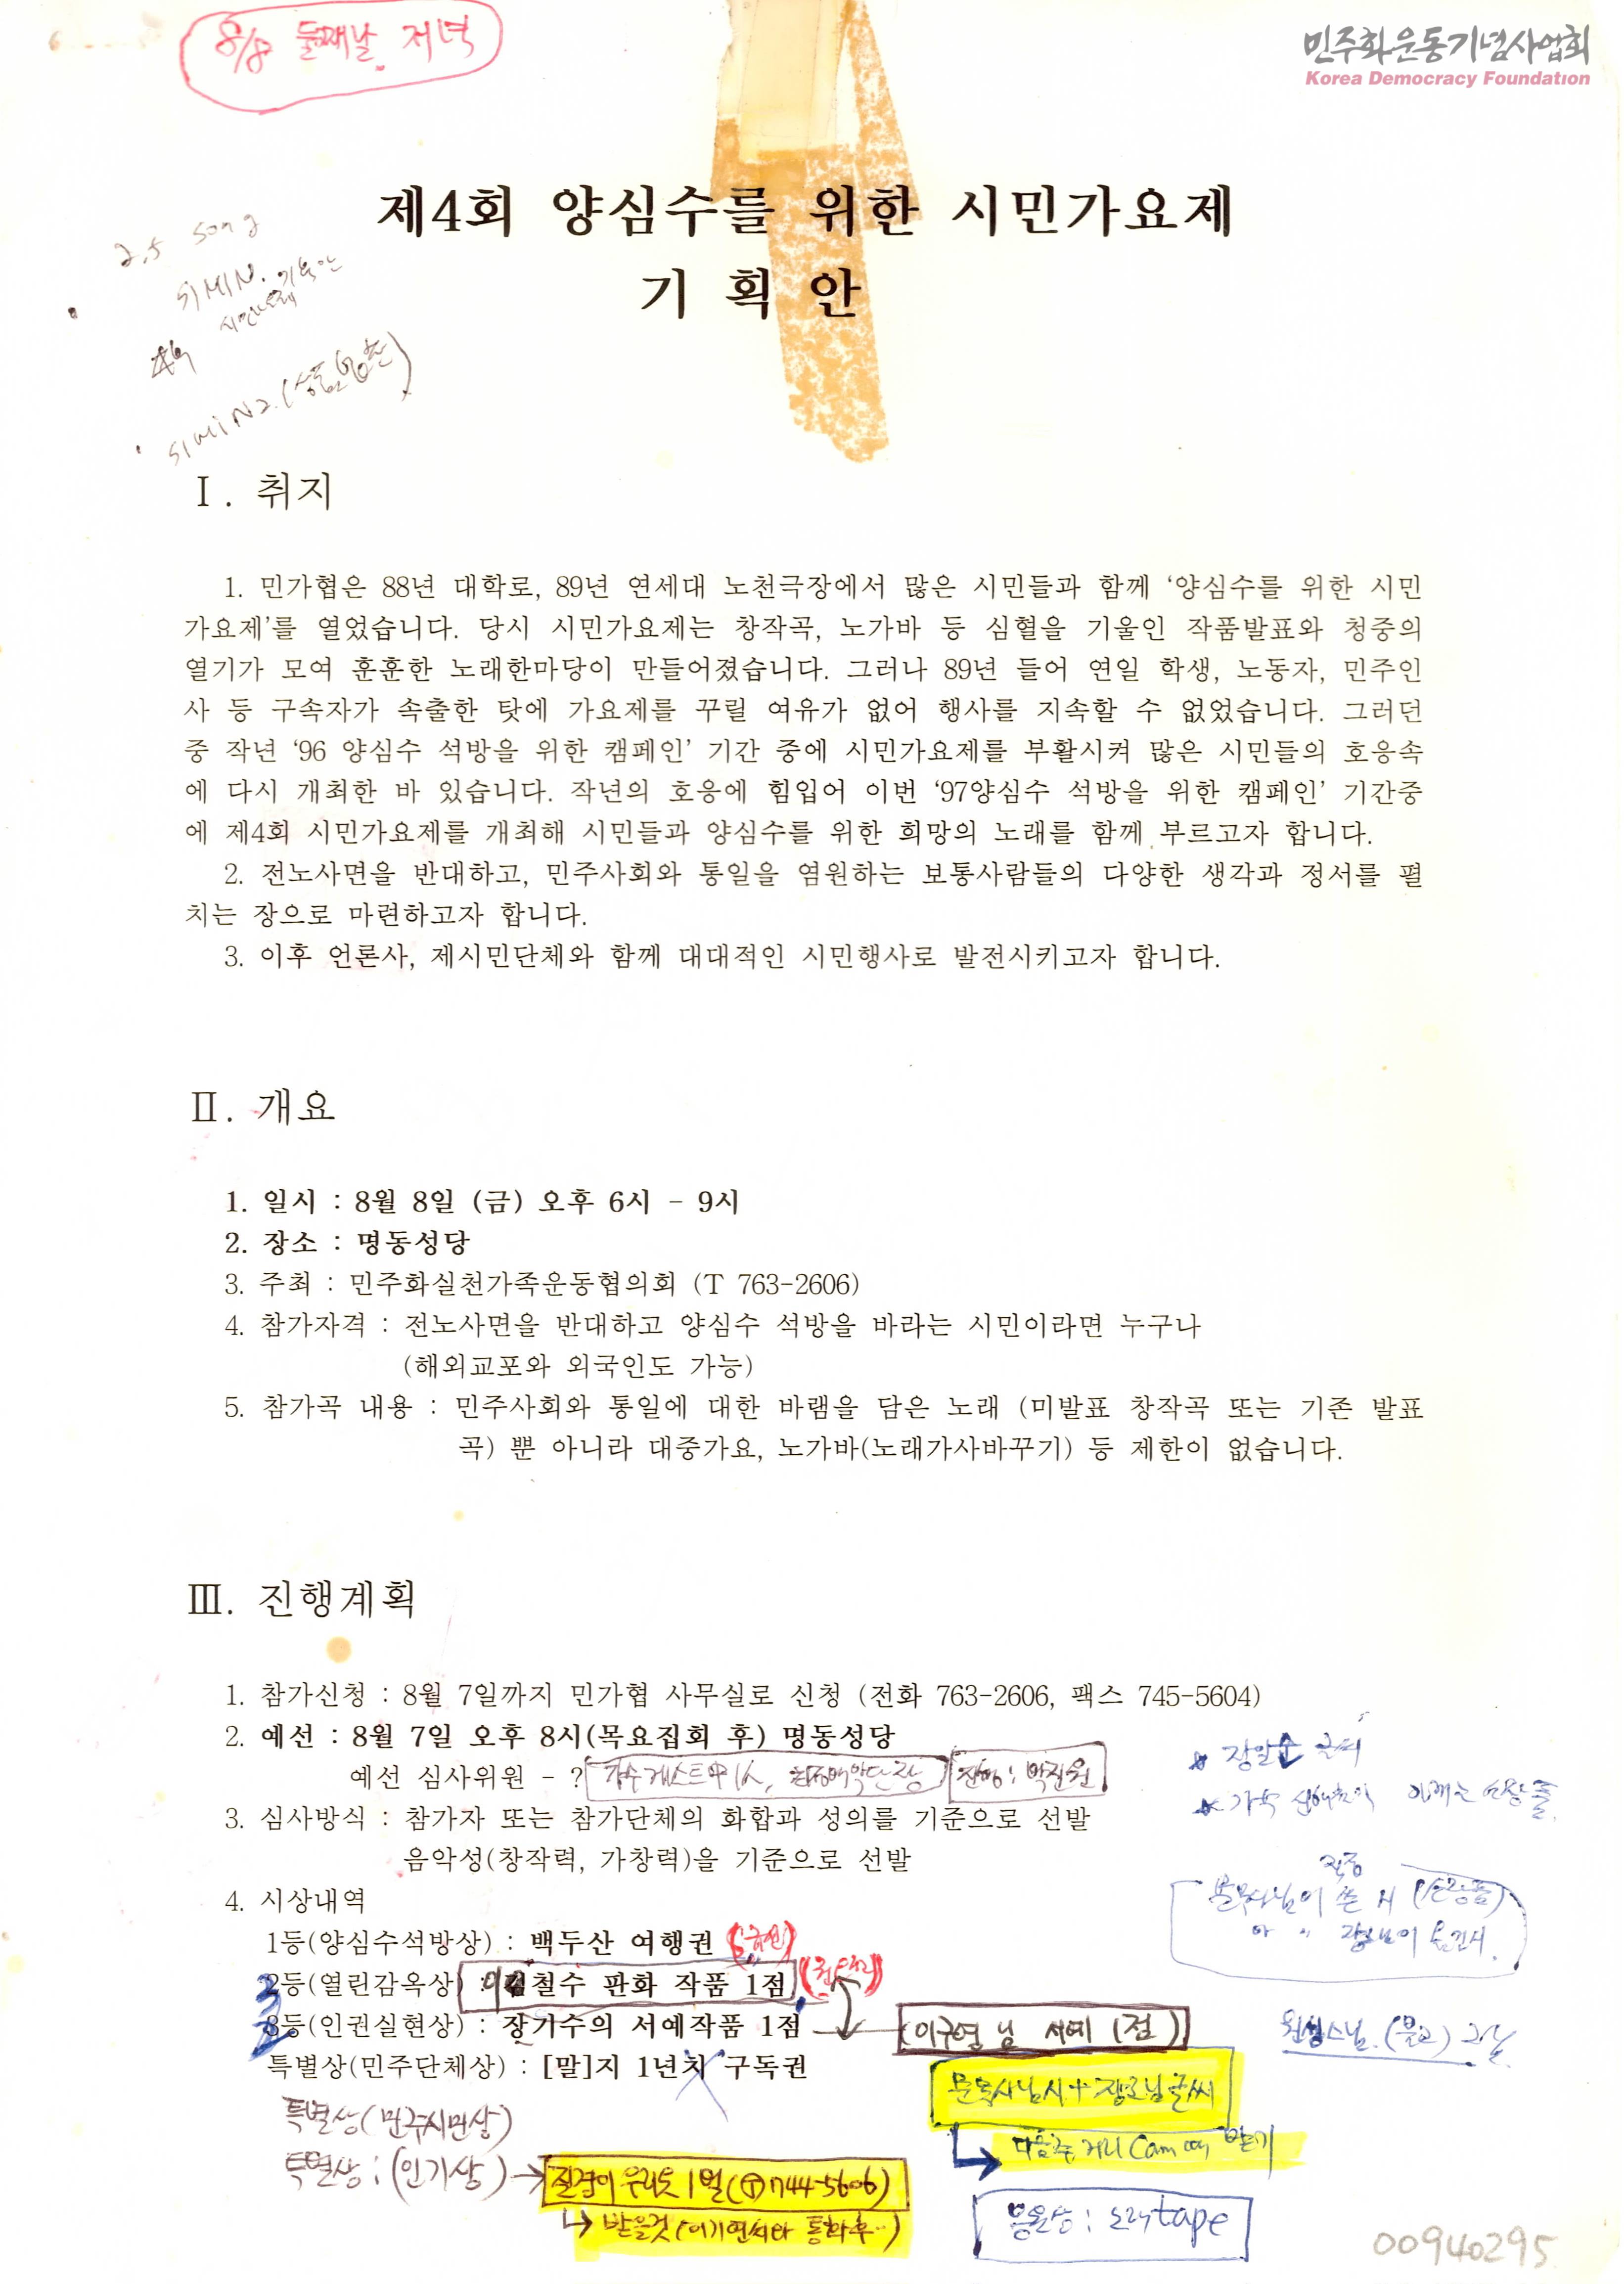 8/8 둘째날 저녁
민주화운동기념사업회
Korea Democracy Foundation
제4회 양심수를 위한 시민가요제
기 획 안
2.5 song
SIMIN.
SIMIN2.
Ⅰ. 취지
1. 민가협은 88년 대학로, 89년 연세대 노천극장에서 많은 시민들과 함께 '양심수를 위한 시민
가요제'를 열었습니다. 당시 시민가요제는 창작곡, 노가바 등 심혈을 기울인 작품발표와 청중의
열기가 모여 훈훈한 노래한마당이 만들어졌습니다. 그러나 89년 들어 연일 학생, 노동자, 민주인
사 등 구속자가 속출한 탓에 가요제를 꾸릴 여유가 없어 행사를 지속할 수 없었습니다. 그러던
중 작년 '96 양심수 석방을 위한 캠페인' 기간 중에 시민가요제를 부활시켜 많은 시민들의 호응속
에 다시 개최한 바 있습니다. 작년의 호응에 힘입어 이번 '97양심수 석방을 위한 캠페인' 기간중
에 제4회 시민가요제를 개최해 시민들과 양심수를 위한 희망의 노래를 함께 부르고자 합니다.
2. 전노사면을 반대하고, 민주사회와 통일을 염원하는 보통사람들의 다양한 생각과 정서를 펼
치는 장으로 마련하고자 합니다.
3. 이후 언론사, 제시민단체와 함께 대대적인 시민행사로 발전시키고자 합니다.
Ⅱ. 개요
1. 일시 : 8월 8일 (금) 오후 6시 - 9시
2. 장소 : 명동성당
3. 주최 : 민주화실천가족운동협의회 (T 763-2606)
4. 참가자격 : 전노사면을 반대하고 양심수 석방을 바라는 시민이라면 누구나
(해외교포와 외국인도 가능)
5. 참가곡 내용 : 민주사회와 통일에 대한 바램을 담은 노래 (미발표 창작곡 또는 기존 발표
곡) 뿐 아니라 대중가요, 노가바(노래가사바꾸기) 등 제한이 없습니다.
Ⅲ. 진행계획
1. 참가신청 : 8월 7일까지 민가협 사무실로 신청 (전화 763-2606, 팩스 745-5604)
2. 예선 : 8월 7일 오후 8시(목요집회 후) 명동성당
예선 심사위원 - ? 가수 게스트中 1人,
3. 심사방식 : 참가자 또는 참가단체의 화합과 성의를 기준으로 선발
음악성(창작력, 가창력)을 기준으로 선발
4. 시상내역
1등(양심수석방상) : 백두산 여행권
2등(열린감옥상) : 이철수 판화 작품 1점
3등(인권실현상) : 장기수의 서예작품 1점
(이구영 님 서예 1점)
특별상(민주단체상) : [말]지 1년치 구독권
문목사님 시 + 장로님 글씨
특별상 (민주시민상)
다음주 거리 Cam 때 받기
특별상 : (인기상)
질경이 우리옷 1벌 (T 744-5606)
받을것 (이기연씨와 통화후..)
tape
00940295